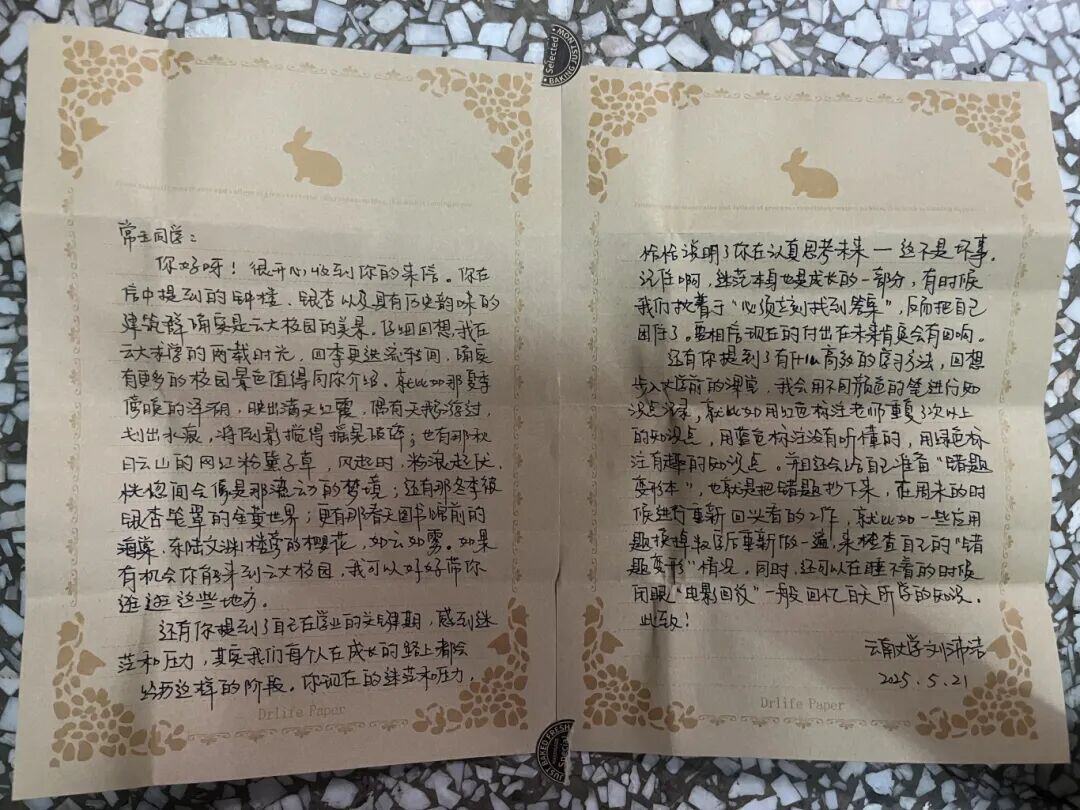 常玉同学：
你好呀！很开心收到你的来信。你在
信中提到的钟楼、银杏以及具有历史韵味的
建筑群确实是云大校园的美景。仔细回想我在
云大求学的两载时光，四季更迭流转间，确实
有更多的校园景色值得向你介绍。就比如那夏季
傍晚的泽湖，映出满天红霞，偶有天鹅游过，
划出水痕，将倒影搅得摇晃破碎；也有那秋
日云山的网红粉黛子草，风起时，粉浪起伏，
恍惚间会像是那流动的梦境；还有那冬季被
银杏笼罩的金黄世界；更有那春天图书馆前的
海棠，东陆文渊楼旁的樱花，如云如雾。如果
有机会你能来到云大校园，我可以好好带你
逛逛这些地方。
还有你提到了自己在学业的关键期，感到迷
茫和压力，其实我们每个人在成长的路上都会
经历这样的阶段。你现在的迷茫和压力，
恰恰说明了你在认真思考未来——这不是坏事。
记住啊，迷茫本身也是成长的一部分，有时候
我们执着于“必须立刻找到答案”，反而把自己
困住了。要相信现在的付出在未来肯定会有回响。
还有你提到了有什么高效的学习方法，回想
步入大学前的课堂，我会用不同颜色的笔进行知
识点记录，就比如用红色标注老师重复了次以上
的知识点，用蓝色标注没有听懂的，用绿色标
注有趣的知识点。并且还会给自己准备“错题
变形本”，也就是把错题抄下来，在周末的时
候进行重新回头看的工作，就比如一些应用
题换掉数据后重新做一遍，来检查自己的“错
题变形”情况。同时，还可以在睡不着的时候
闭眼“电影回放”一般回忆白天所学的知识。
此致！
云南大学刘沛洁
2025.5.21
Drlife Paper
Drlife Paper
Selected
BAKING JUST
BAKED FRESH